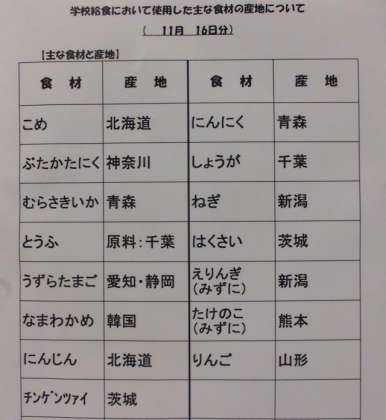 学校給食において使用した主な食材の産地について
( 11月 16日分)
【主な食材と産地】
食 材 産 地 食 材 産 地
こめ 北海道 にんにく 青森
ぶたかたにく 神奈川 しょうが 千葉
むらさきいか 青森 ねぎ 新潟
とうふ 原料:千葉 はくさい 茨城
うずらたまご 愛知・静岡 えりんぎ 新潟
(みずに)
なまわかめ 韓国 たけのこ 熊本
(みずに)
にんじん 北海道 りんご 山形
チンゲンツァイ 茨城